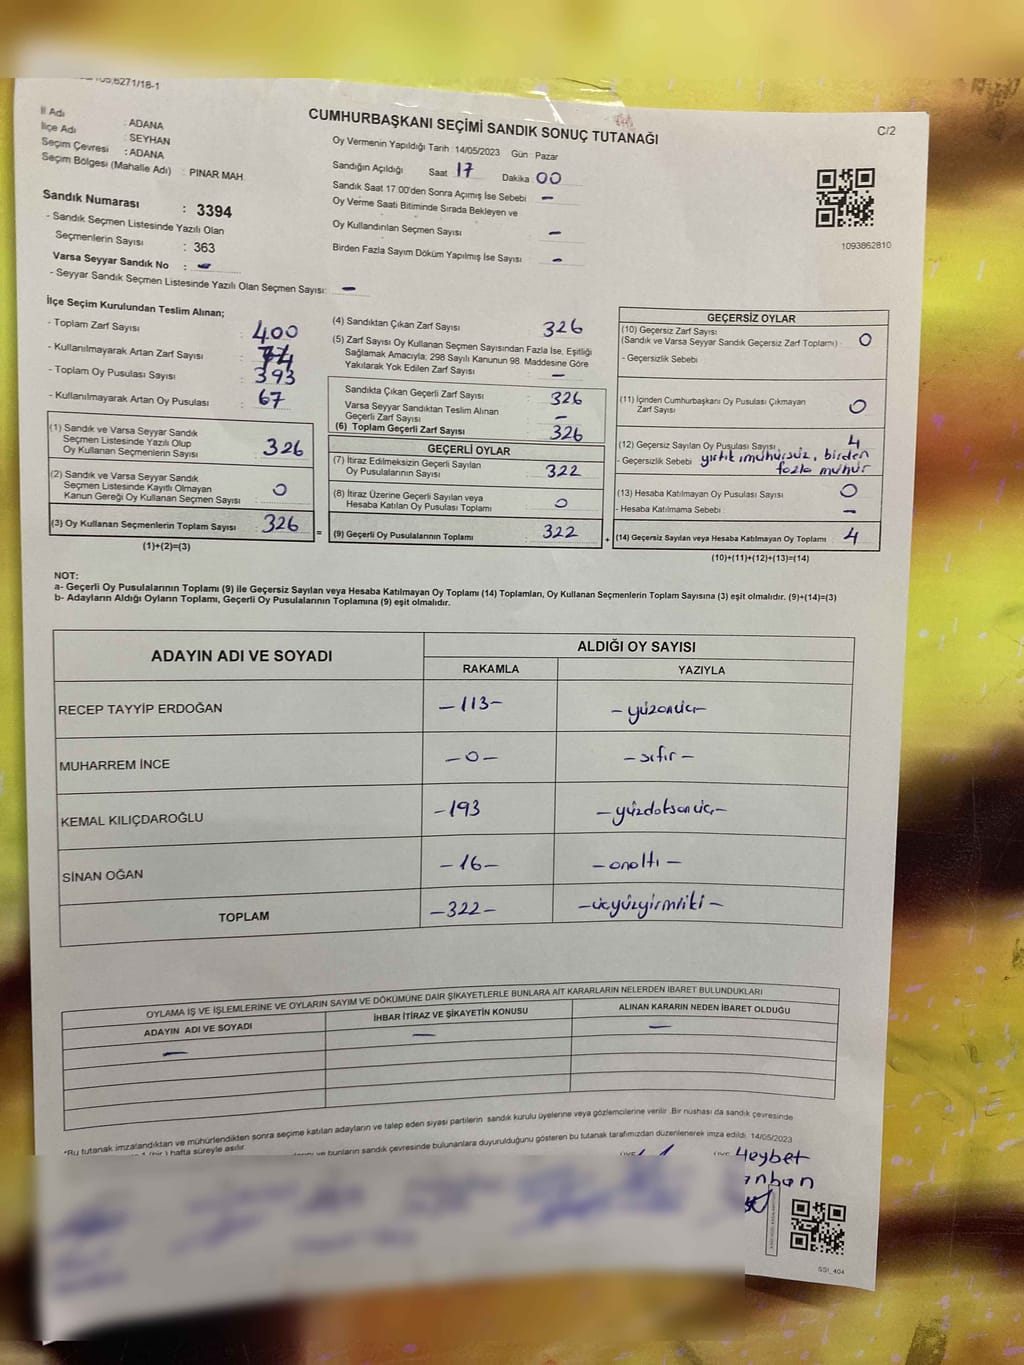 CUMHURBAŞKANI SEÇİMİ SANDIK SONUÇ TUTANAĞI
C/2
İl Adı : ADANA
İlçe Adı : SEYHAN
Seçim Çevresi : ADANA
Seçim Bölgesi (Mahalle Adı) : PINAR MAH.
Sandık Numarası : 3394
- Sandık Seçmen Listesinde Yazılı Olan
Seçmenlerin Sayısı : 363
Varsa Seyyar Sandık No : -
- Seyyar Sandık Seçmen Listesinde Yazılı Olan Seçmen Sayısı: -
Oy Vermenin Yapıldığı Tarih 14/05/2023 Gün Pazar
Sandığın Açıldığı Saat 17 Dakika 00
Sandık Saat 17 00'den Sonra Açımış İse Sebebi -
Oy Verme Saati Bitiminde Sırada Bekleyen ve
Oy Kullandırılan Seçmen Sayısı -
Birden Fazla Sayım Döküm Yapılmış İse Sayısı : -
1093862810
İlçe Seçim Kurulundan Teslim Alınan;
- Toplam Zarf Sayısı : 400
- Kullanılmayarak Artan Zarf Sayısı : 74
- Toplam Oy Pusulası Sayısı : 393
- Kullanılmayarak Artan Oy Pusulası : 67
(1) Sandık ve Varsa Seyyar Sandık
Seçmen Listesinde Yazılı Olup
Oy Kullanan Seçmenlerin Sayısı : 326
(2) Sandık ve Varsa Seyyar Sandık
Seçmen Listesinde Kayıtlı Olmayan
Kanun Gereği Oy Kullanan Seçmen Sayısı : 0
(3) Oy Kullanan Seçmenlerin Toplam Sayısı : 326
(1)+(2)=(3)
=
(4) Sandıktan Çıkan Zarf Sayısı : 326
(5) Zarf Sayısı Oy Kullanan Seçmen Sayısından Fazla İse, Eşitliği
Sağlamak Amacıyla; 298 Sayılı Kanunun 98. Maddesine Göre
Yakılarak Yok Edilen Zarf Sayısı : -
Sandıkta Çıkan Geçerli Zarf Sayısı : 326
Varsa Seyyar Sandıktan Teslim Alınan
Geçerli Zarf Sayısı : -
(6) Toplam Geçerli Zarf Sayısı : 326
GEÇERLİ OYLAR
(7) İtiraz Edilmeksizin Geçerli Sayılan
Oy Pusulalarının Sayısı : 322
(8) İtiraz Üzerine Geçerli Sayılan veya
Hesaba Katılan Oy Pusulası Toplamı : 0
(9) Geçerli Oy Pusulalarının Toplamı : 322
+
GEÇERSİZ OYLAR
(10) Geçersiz Zarf Sayısı
(Sandık ve Varsa Seyyar Sandık Geçersiz Zarf Toplamı) : 0
- Geçersizlik Sebebi
(11) İçinden Cumhurbaşkanı Oy Pusulası Çıkmayan
Zarf Sayısı : 0
(12) Geçersiz Sayılan Oy Pusulası Sayısı : 4
- Geçersizlik Sebebi yırtık, mühürsüz, birden
fazla mühür
(13) Hesaba Katılmayan Oy Pusulası Sayısı : 0
- Hesaba Katılmama Sebebi : -
(14) Geçersiz Sayılan veya Hesaba Katılmayan Oy Toplamı : 4
(10)+(11)+(12)+(13)=(14)
NOT:
a- Geçerli Oy Pusulalarının Toplamı (9) ile Geçersiz Sayılan veya Hesaba Katılmayan Oy Toplamı (14) Toplamları, Oy Kullanan Seçmenlerin Toplam Sayısına (3) eşit olmalıdır. (9)+(14)=(3)
b- Adayların Aldığı Oyların Toplamı, Geçerli Oy Pusulalarının Toplamına (9) eşit olmalıdır.
ADAYIN ADI VE SOYADI ALDIĞI OY SAYISI
RAKAMLA YAZIYLA
RECEP TAYYİP ERDOĞAN -113- -yüzonüç-
MUHARREM İNCE -0- -sıfır-
KEMAL KILIÇDAROĞLU -193 -yüzdoksanüç-
SİNAN OĞAN -16- -onaltı-
TOPLAM -322- -üçyüzyirmiiki-
OYLAMA İŞ VE İŞLEMLERİNE VE OYLARIN SAYIM VE DÖKÜMÜNE DAİR ŞİKAYETLERLE BUNLARA AİT KARARLARIN NELERDEN İBARET BULUNDUKLARI
ADAYIN ADI VE SOYADI İHBAR İTİRAZ VE ŞİKAYETİN KONUSU ALINAN KARARIN NEDEN İBARET OLDUĞU
- - -
*Bu tutanak imzalandıktan ve mühürlendikten sonra seçime katılan adayların ve talep eden siyasi partilerin sandık kurulu üyelerine veya gözlemcilerine verilir .Bir nüshası da sandık çevresinde
hafta süreyle asılır.
ve bunların sandık çevresinde bulunanlara duyurulduğunu gösteren bu tutanak tarafımızdan düzenlenerek imza edildi. 14/05/2023
Heybet
SSI_404